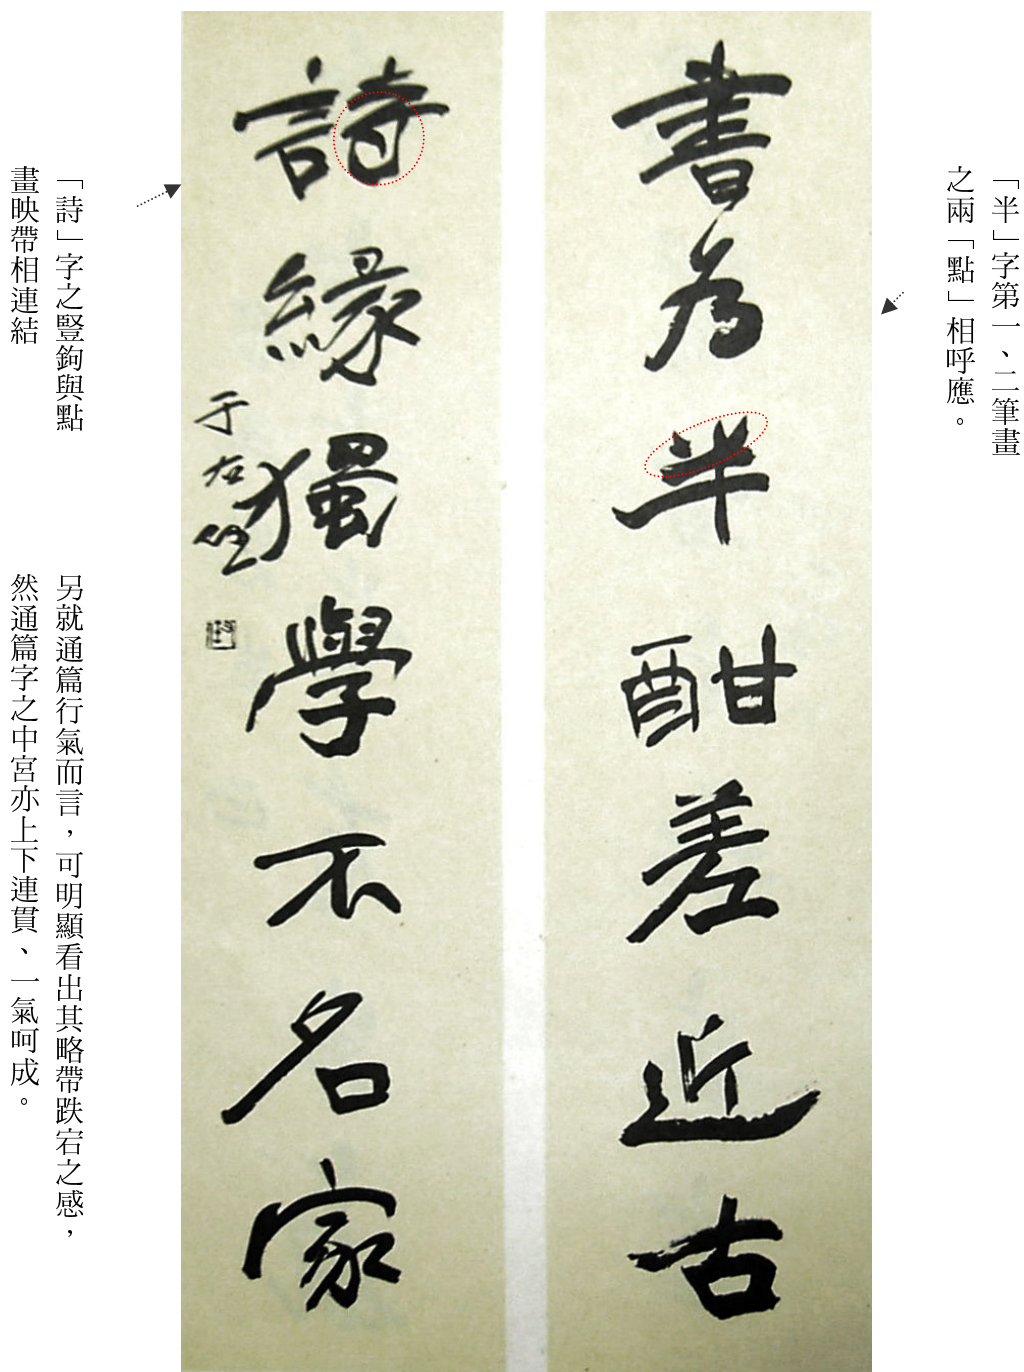 「半」字第一、二筆畫
之兩「點」相呼應。
書為半酣差近古
詩緣獨學不名家
于右任
「詩」字之豎鉤與點
畫映帶相連結
另就通篇行氣而言，可明顯看出其略帶跌宕之感，
然通篇字之中宮亦上下連貫、一氣呵成。